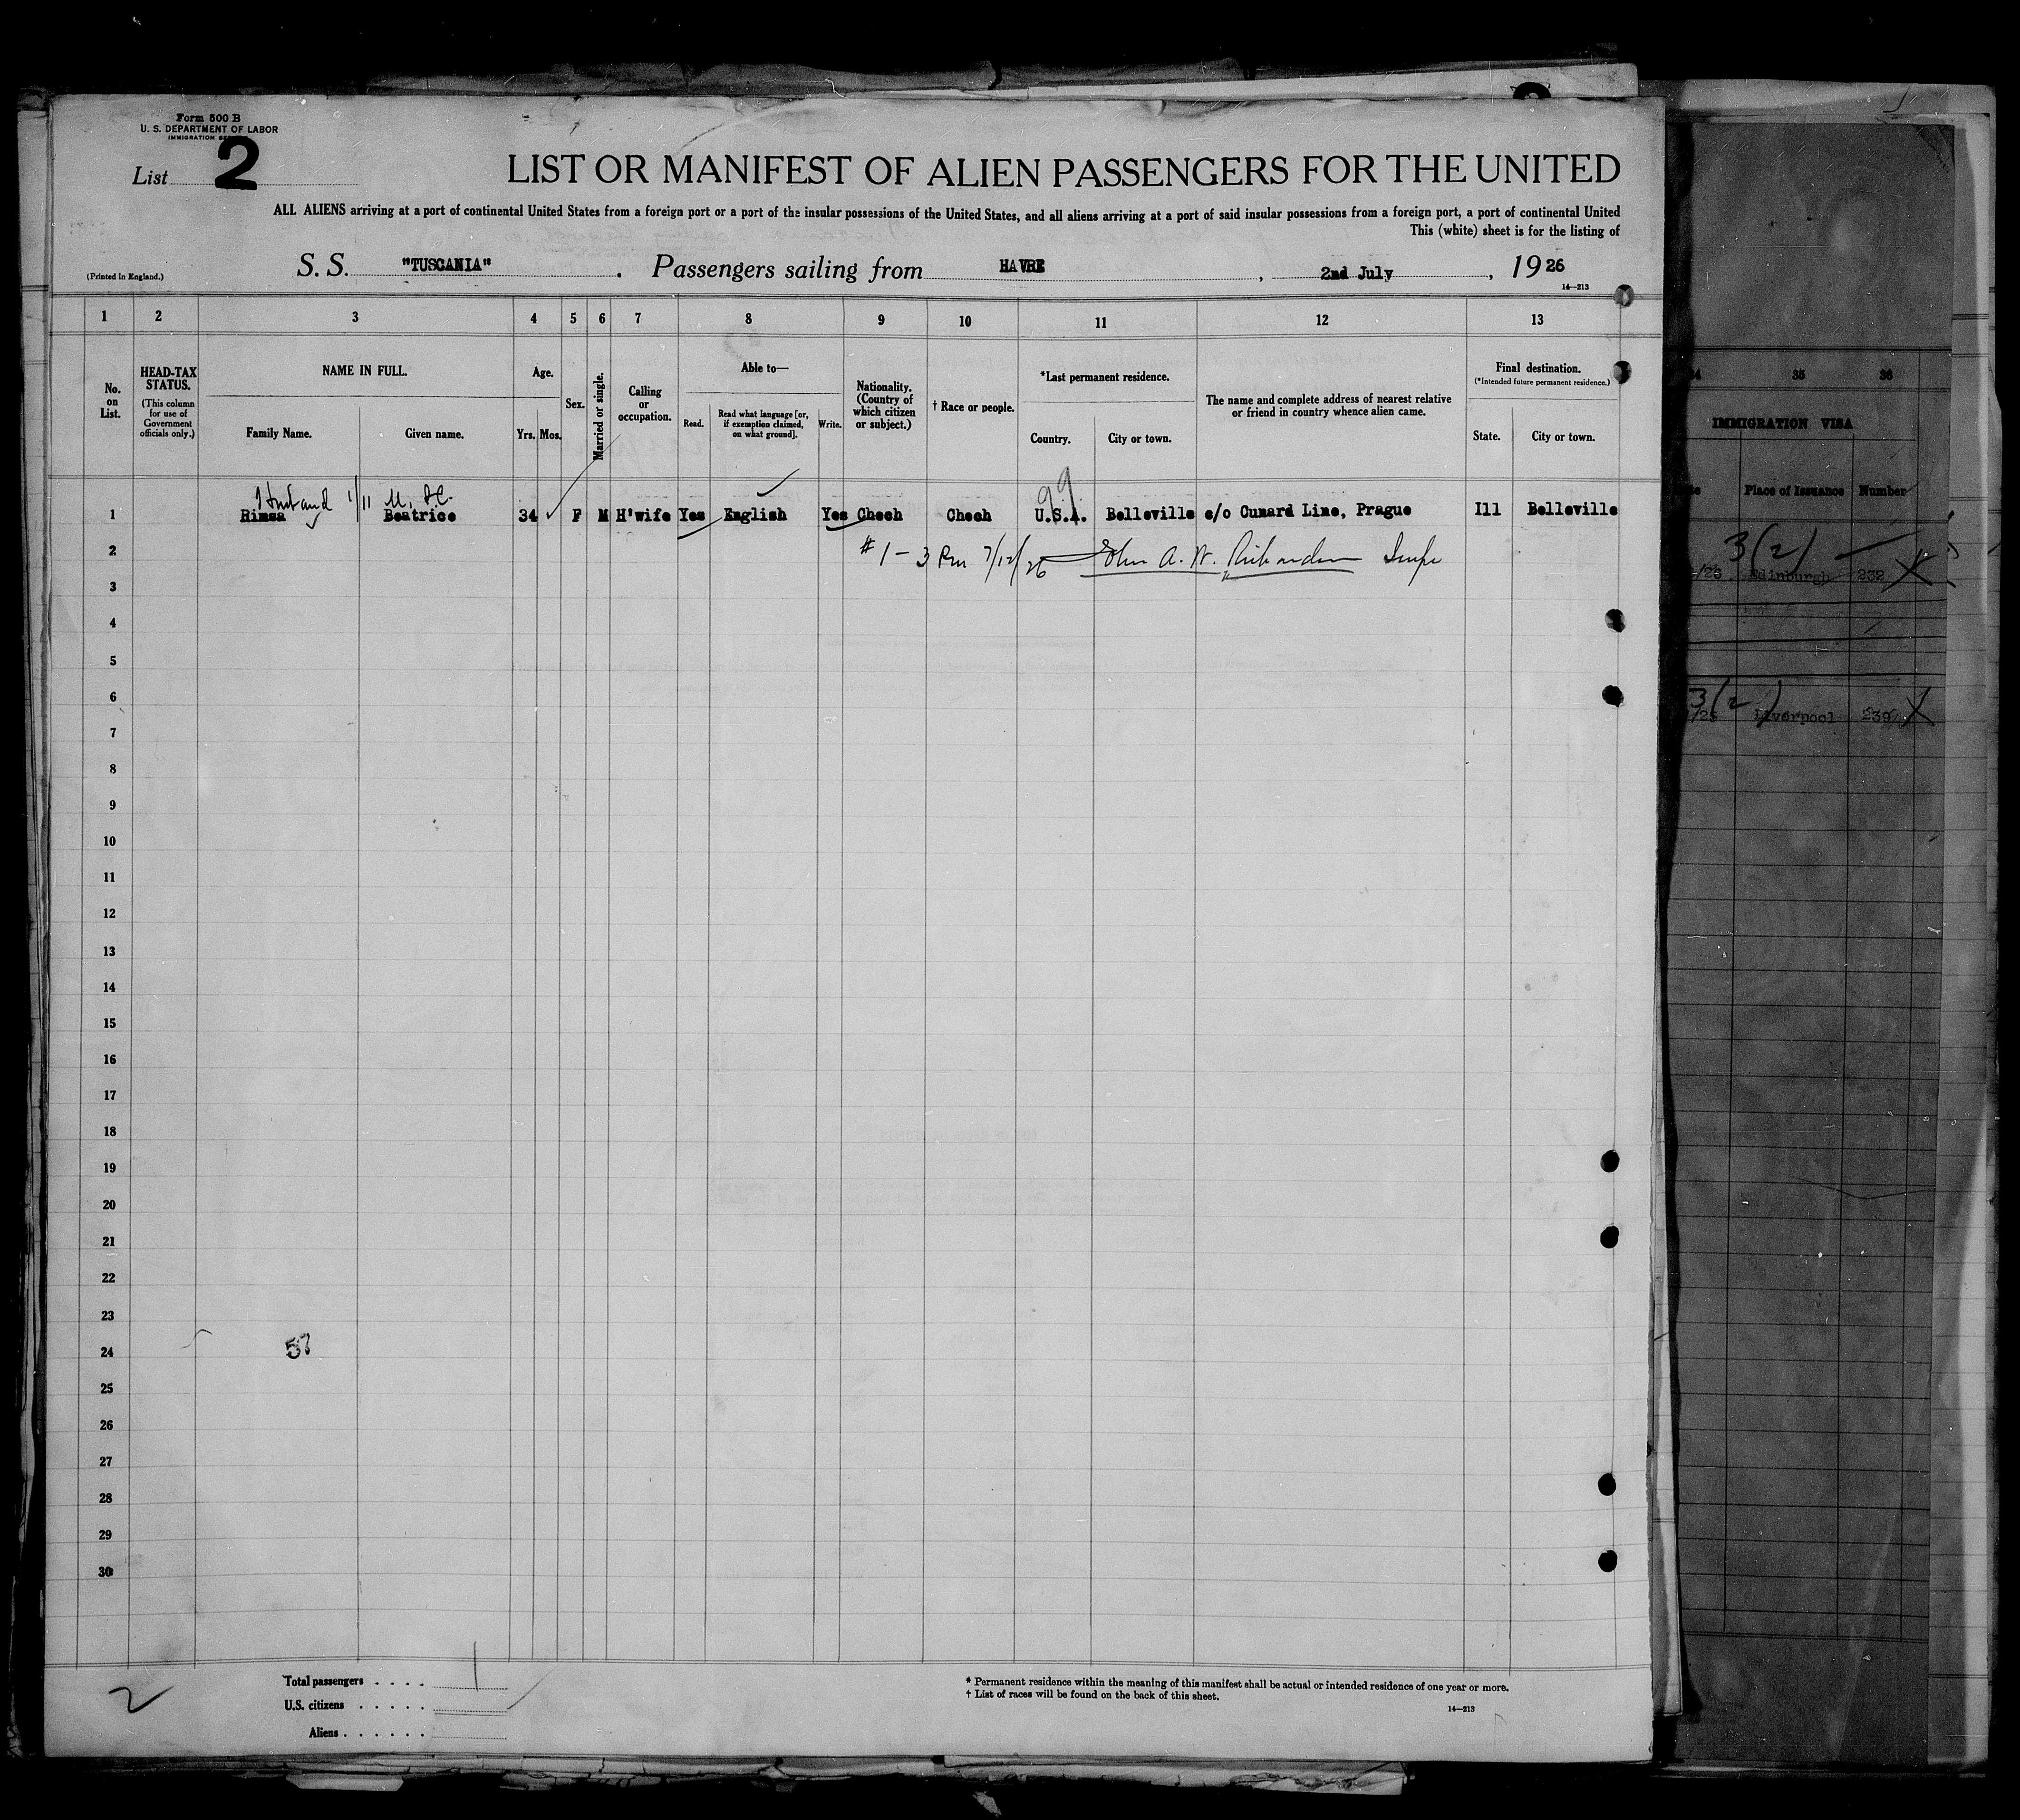 Form 500 B
U. S. DEPARTMENT OF LABOR
IMMIGRATION
List 2
LIST OR MANIFEST OF ALIEN PASSENGERS FOR THE UNITED
ALL ALIENS arriving at a port of continental United States from a foreign port or a port of the insular possessions of the United States, and all aliens arriving at a port of said insular possessions from a foreign port, a port of continental United
This (white) sheet is for the listing of
(Printed in England.)
S. S. "TUSCANIA" . Passengers sailing from HAVRE , 2nd July , 1926
14—213
1 2 3 4 5 6 7 8 9 10 11 12 13
No. on List.
HEAD-TAX STATUS.
(This column for use of Government officials only.)
NAME IN FULL.
Family Name. Given name.
Age.
Yrs. Mos.
Sex.
Married or single.
Calling or occupation.
Able to—
Read. Read what language [or, if exemption claimed, on what ground]. Write.
Nationality. (Country of which citizen or subject.)
† Race or people.
*Last permanent residence.
Country. City or town.
The name and complete address of nearest relative or friend in country whence alien came.
Final destination.
(*Intended future permanent residence.)
State. City or town.
Husband 1/11
99
1 Rimsa Beatrice 34 F M H'wife Yes English Yes Chech Chech U.S.A. Belleville c/o Cunard Line, Prague Ill Belleville
2 #1 - 3 Pm 7/12/26 John A. W. Richardson
3
4
5
6
7
8
9
10
11
12
13
14
15
16
17
18
19
20
21
22
23
24 57
25
26
27
28
29
30
Total passengers . . . . 1
U.S. citizens . . . . .
Aliens . . . . . .
2
* Permanent residence within the meaning of this manifest shall be actual or intended residence of one year or more.
† List of races will be found on the back of this sheet.
14—213
35 36
IMMIGRATION VISA
Place of Issuance Number
3(2)
Edinburgh 232 X
3(2)
Liverpool 239 X